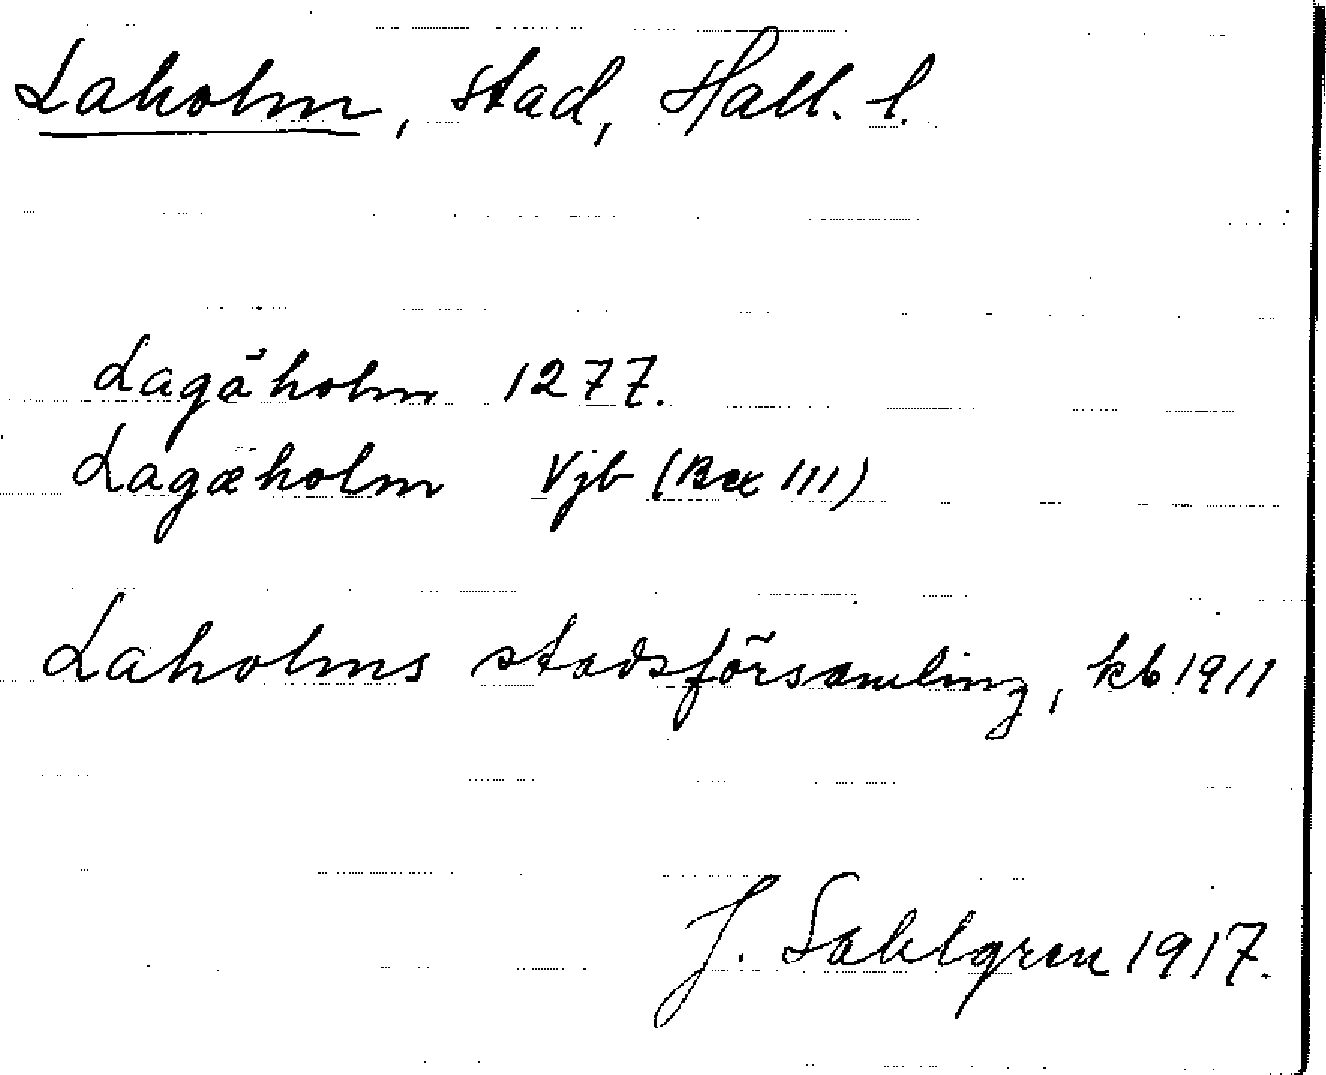 Laholm, stad, Hall. l.
Lagäholm 1277.
Lagæholm Vjb (Rec III)
Laholms stadsförsamling, kb 1911
J. Sahlgren 1917.